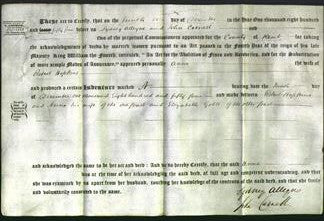 These are to Certify, that on the day of in the Year One thousand eight hundred
and fifty four before us Sydney Alleyne and John Carnell
two of the perpetual Commissioners appointed for the County of Kent for
taking the acknowledgments of deeds by married women pursuant to an Act passed in the Fourth Year of the reign of his late
Majesty King William the Fourth, intituled, "An Act for the Abolition of Fines and Recoveries, and for the Substitution
of more simple Modes of Assurance," appeared personally Anna the Wife of
Robert Hopkins
and produced a certain Indenture marked A bearing date the day
of December one thousand eight hundred and fifty four and made between Robert Hopkins
and Anna his wife of the one part and Elizabeth of the other part
and acknowledged the same to be her act and deed: And we do hereby Certify, that the said Anna
was at the time of her acknowledging the said deed, of full age and competent understanding, and that
she was examined by us apart from her husband, touching her knowledge of the contents of the said deed, and that she freely
and voluntarily consented to the same.
Sydney Alleyne
John Carnell